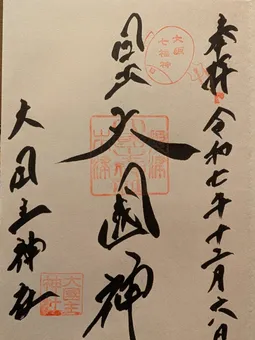 奉拝 令和七年十二月六日
大阪
七福神
日出大國神
大国主神社
大國主
神社